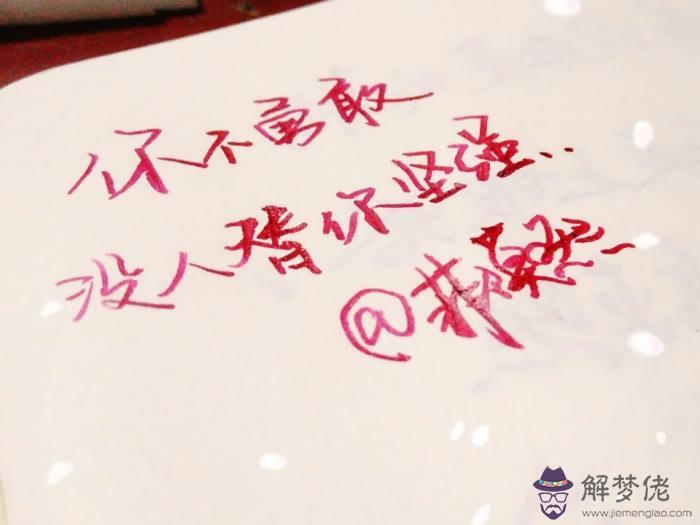 你不勇敢
没人替你坚强..
@
解梦佬
www.jiemenglao.com